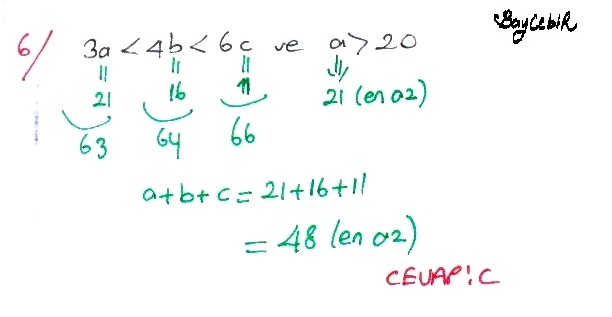 BayCebiR
6/ 3a < 4b < 6c ve a > 20
21 16 11 21 (en az)
63 64 66
a+b+c = 21+16+11
= 48 (en az)
CEVAP: C